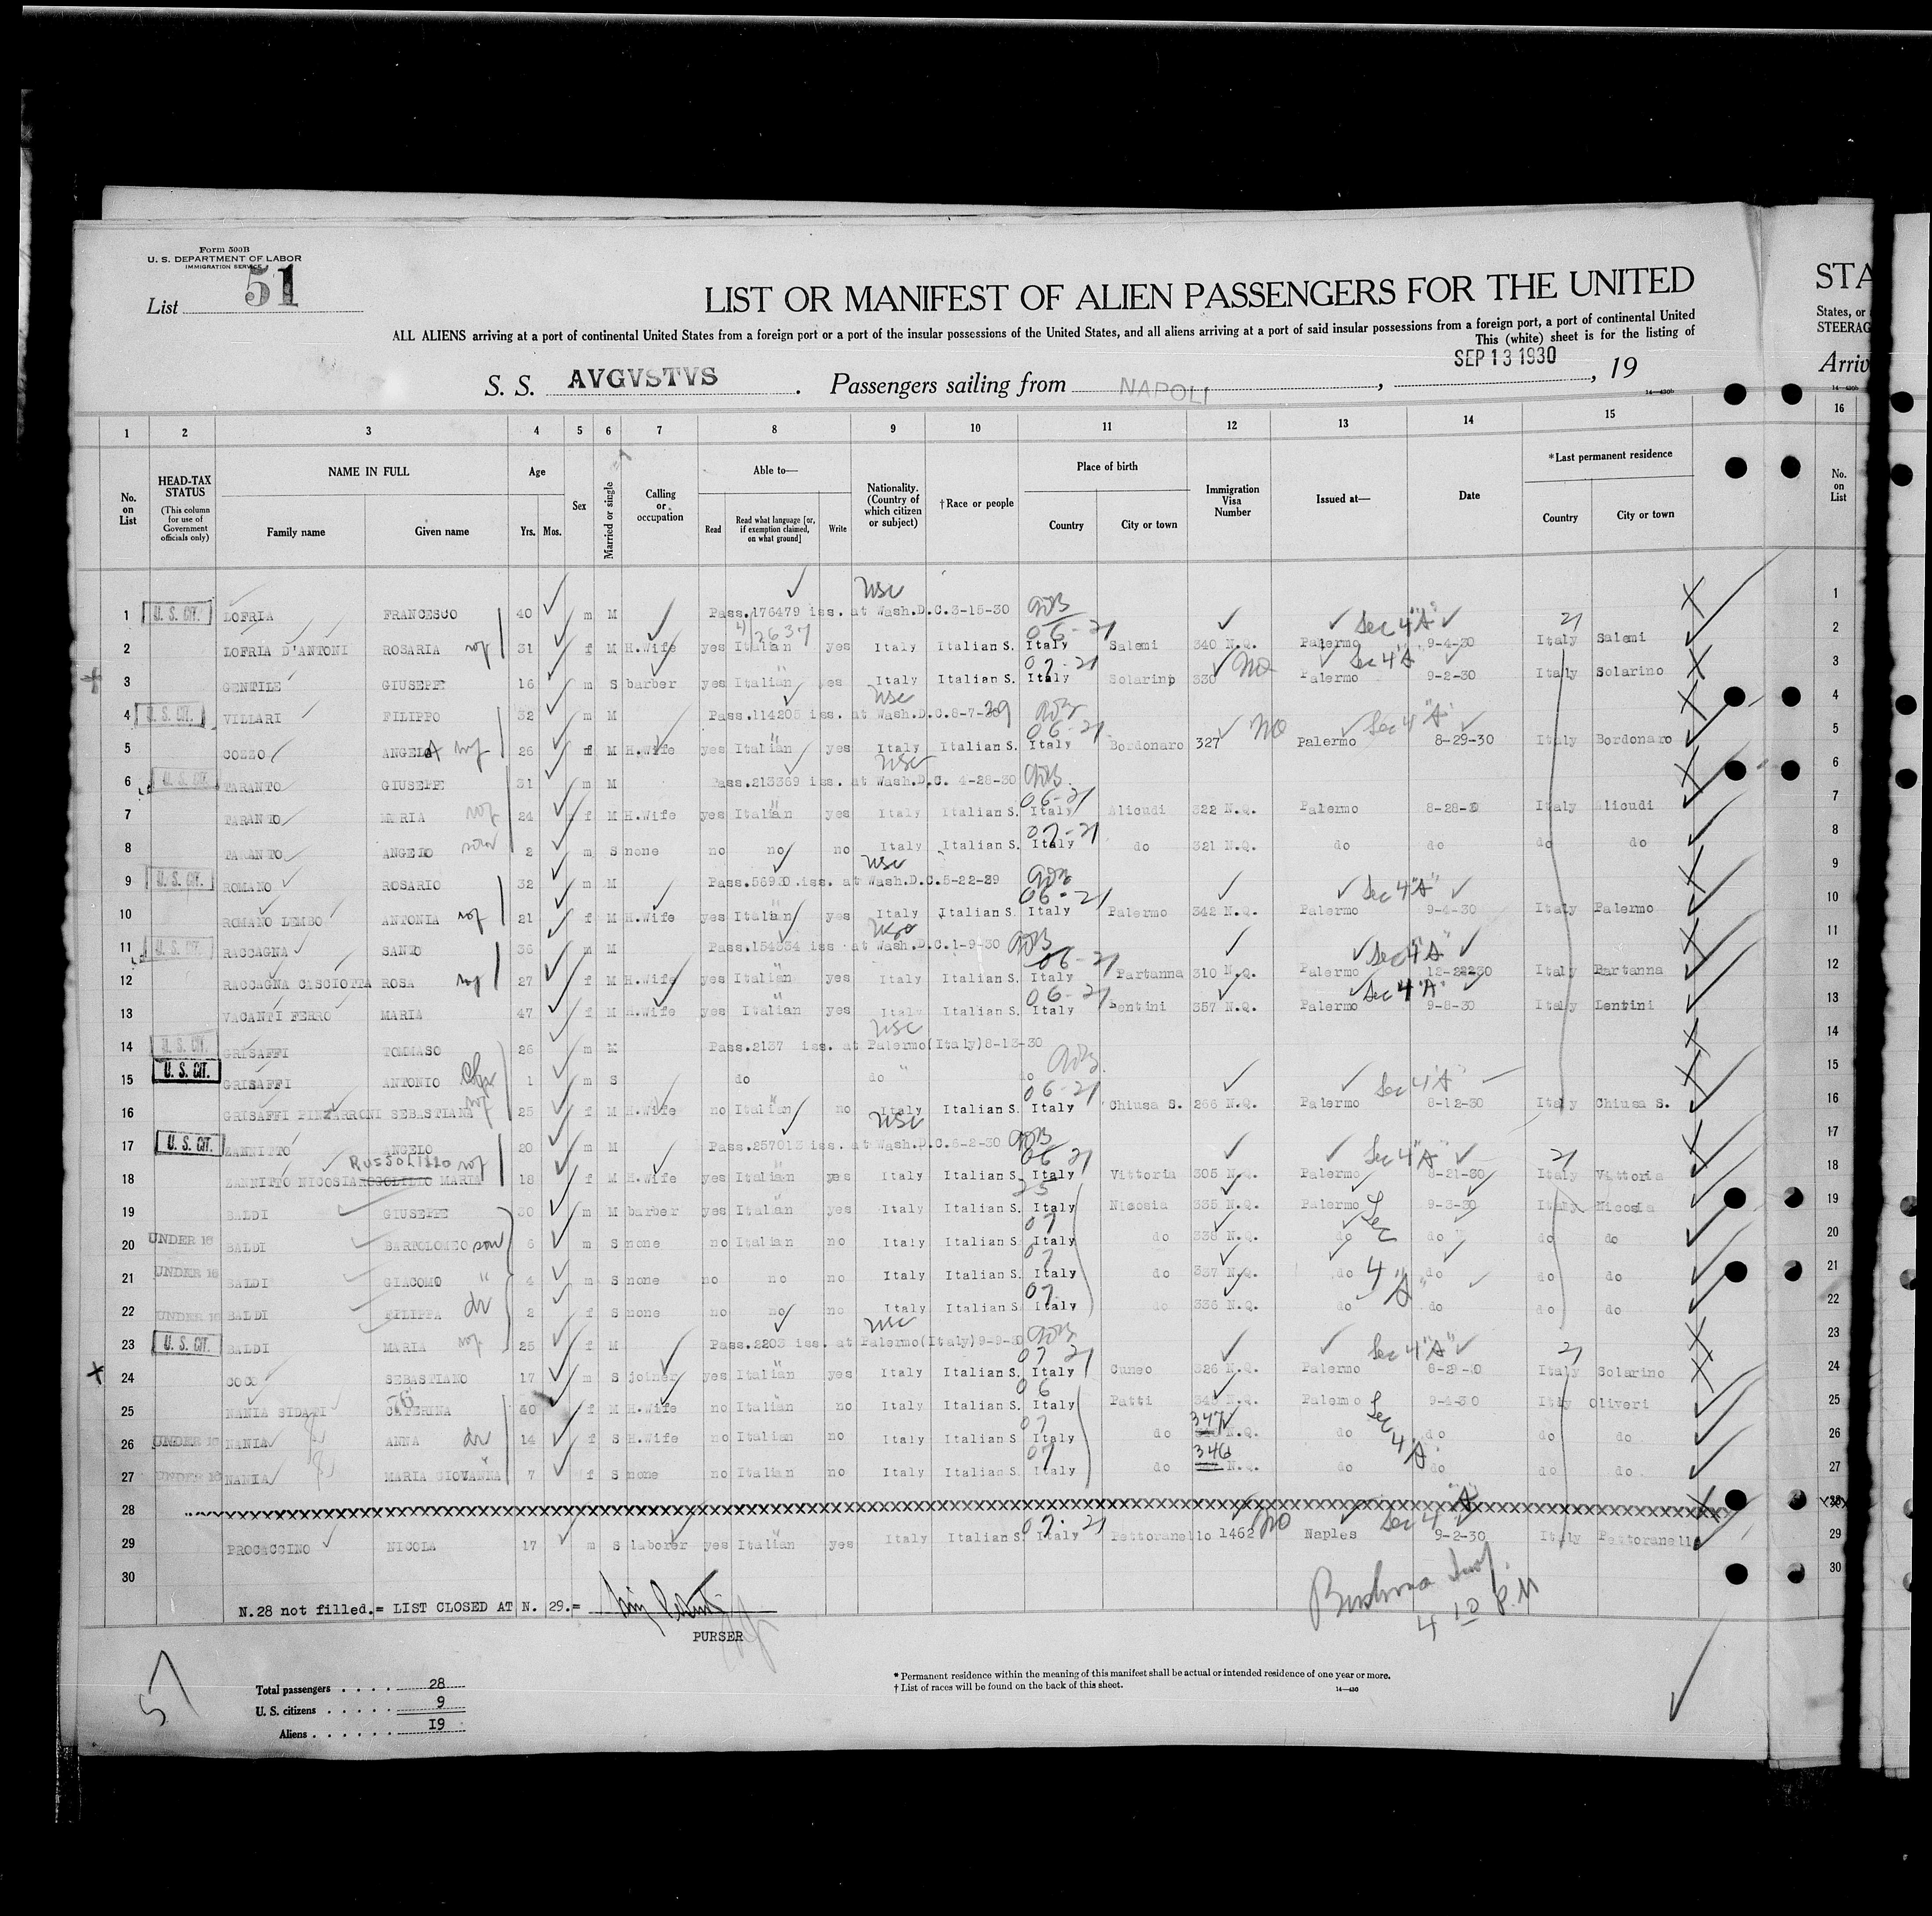 Form 500B
U. S. DEPARTMENT OF LABOR
IMMIGRATION SERVICE
List 51
LIST OR MANIFEST OF ALIEN PASSENGERS FOR THE UNITED
STA
ALL ALIENS arriving at a port of continental United States from a foreign port or a port of the insular possessions of the United States, and all aliens arriving at a port of said insular possessions from a foreign port, a port of continental United
States, or
This (white) sheet is for the listing of
STEERAG
S. S. AVGVSTVS. Passengers sailing from NAPOLI, SEP 13 1930, 19
Arriv
14—430b
1 2 3 4 5 6 7 8 9 10 11 12 13 14 15 16
No. on List
HEAD-TAX STATUS (This column for use of Government officials only)
NAME IN FULL Family name Given name
Age Yrs. Mos.
Sex
Married or single
Calling or occupation
Able to— Read Read what language [or, if exemption claimed, on what ground] Write
Nationality. (Country of which citizen or subject)
†Race or people
Place of birth Country City or town
Immigration Visa Number
Issued at—
Date
*Last permanent residence Country City or town
No. on List
1 U. S. CIT. LOFRIA FRANCESCO 40 m M Pass.176479 iss. at Wash.D.C.3-15-30 USC 1
2 LOFRIA D'ANTONI ROSARIA 31 f M H.Wife yes Italian yes Italy Italian S. Italy 06-21 Salemi 340 N.Q. Palermo Sec 4 "A" 9-4-30 Italy Salemi 2
3 GENTILE GIUSEPPE 16 m S barber yes Italian yes Italy Italian S. Italy 07-21 Solarino 330 NQ Palermo Sec 4 "A" 9-2-30 Italy Solarino 3
4 U. S. CIT. VILLARI FILIPPO 32 m M Pass.114205 iss. at Wash.D.C.8-7-29 USC 4
5 COZZO ANGELA 26 f M H.Wife yes Italian yes Italy Italian S. Italy 06-21 Bordonaro 327 NQ Palermo Sec 4 "A" 8-29-30 Italy Bordonaro 5
6 U. S. CIT. TARANTO GIUSEPPE 31 m M Pass.213369 iss. at Wash.D.C. 4-28-30 USC 6
7 TARANTO MARIA 24 f M H.Wife yes Italian yes Italy Italian S. Italy 06-21 Alicudi 322 N.Q. Palermo 8-28-30 Italy Alicudi 7
8 TARANTO ANGELO son 2 m S none no no no Italy Italian S. Italy 07-21 do 321 N.Q. do do do do 8
9 U. S. CIT. ROMANO ROSARIO 32 m M iss. at Wash.D.C.5-22-29 USC 9
10 ROMANO LEMBO ANTONIA 21 f M H.Wife yes Italian yes Italy Italian S. Italy 06-21 Palermo 342 N.Q. Palermo Sec 4 "A" 9-4-30 Italy Palermo 10
11 U. S. CIT. RACCAGNA SANTO 36 m M iss. at Wash.D.C.1-9-30 USC 11
12 RACCAGNA CASCIOTTA ROSA 27 f M H.Wife yes Italian yes Italy Italian S. Italy 06-21 Partanna 310 N.Q. Palermo Sec 4 "A" Italy Partanna 12
13 VACANTI FERRO MARIA 47 f M H.Wife yes Italian yes Italy Italian S. Italy 06-21 Lentini 357 N.Q. Palermo Sec 4 "A" 9-8-30 Italy Lentini 13
14 U. S. CIT. GRISAFFI TOMMASO 26 m M Pass.2137 iss. at Palermo(Italy)8-13-30 USC 14
15 U. S. CIT. GRISAFFI ANTONIO 1 m S do do do 15
16 GRISAFFI PINZARRONI SEBASTIANA 25 f M H.Wife no Italian no Italy Italian S. Italy 06-21 Chiusa S. 266 N.Q. Palermo Sec 4 "A" 8-12-30 Italy Chiusa S. 16
17 U. S. CIT. ZANNITTO ANGELO 20 m M Pass.257013 iss. at Wash.D.C.6-2-30 USC 17
18 ZANNITTO NICOSIA Russolillo MARIA 18 f M H.Wife yes Italian yes Italy Italian S. Italy 06 21 Vittoria 305 N.Q. Palermo Sec 4 "A" 8-21-30 Italy Vittoria 18
19 BALDI GIUSEPPE 30 m M barber yes Italian yes Italy Italian S. Italy Nicosia 335 N.Q. Palermo 9-3-30 Italy Nicosia 19
20 UNDER 16 BALDI BARTOLOMEO son 6 m S none no Italian no Italy Italian S. Italy 07 do 338 N.Q. do Sec do do do 20
21 UNDER 16 BALDI GIACOMO " 4 m S none no no no Italy Italian S. Italy 07 do 337 N.Q. do 4 do do do 21
22 UNDER 16 BALDI FILIPPA 2 f S none no no no Italy Italian S. Italy 07 do 336 N.Q. do "A" do do do 22
23 U. S. CIT. BALDI MARIA 25 f M Pass.2203 iss. at Palermo(Italy)9-9-30 USC 23
24 COCO SEBASTIANO 17 m S joiner yes Italian yes Italy Italian S. Italy 07 21 Cuneo 326 N.Q. Palermo Sec 4 "A" Italy Solarino 24
25 NANIA SIDATI CATERINA 40 f M H.Wife no Italian no Italy Italian S. Italy 06 Patti N.Q. Palermo 9-4-30 Italy Oliveri 25
26 UNDER 16 NANIA ANNA 14 f S H.Wife no Italian no Italy Italian S. Italy 07 do 347 N.Q. do Sec 4 "A" do do do 26
27 UNDER 16 NANIA MARIA GIOVANNA 7 f S none no Italian no Italy Italian S. Italy 07 do 346 N.Q. do do do do 27
28 28
29 PROCACCINO NICOLA 17 m S laborer yes Italian yes Italy Italian S. Italy 07-21 Pettoranello 1462 NQ Naples Sec 4 "A" 9-2-30 Italy Pettoranello 29
30 30
N.28 not filled.= LIST CLOSED AT N. 29.=
PURSER
4 10 P.M
51
Total passengers . . . . . 28
U. S. citizens . . . . . . 9
Aliens . . . . . . . 19
* Permanent residence within the meaning of this manifest shall be actual or intended residence of one year or more.
† List of races will be found on the back of this sheet.
14—430